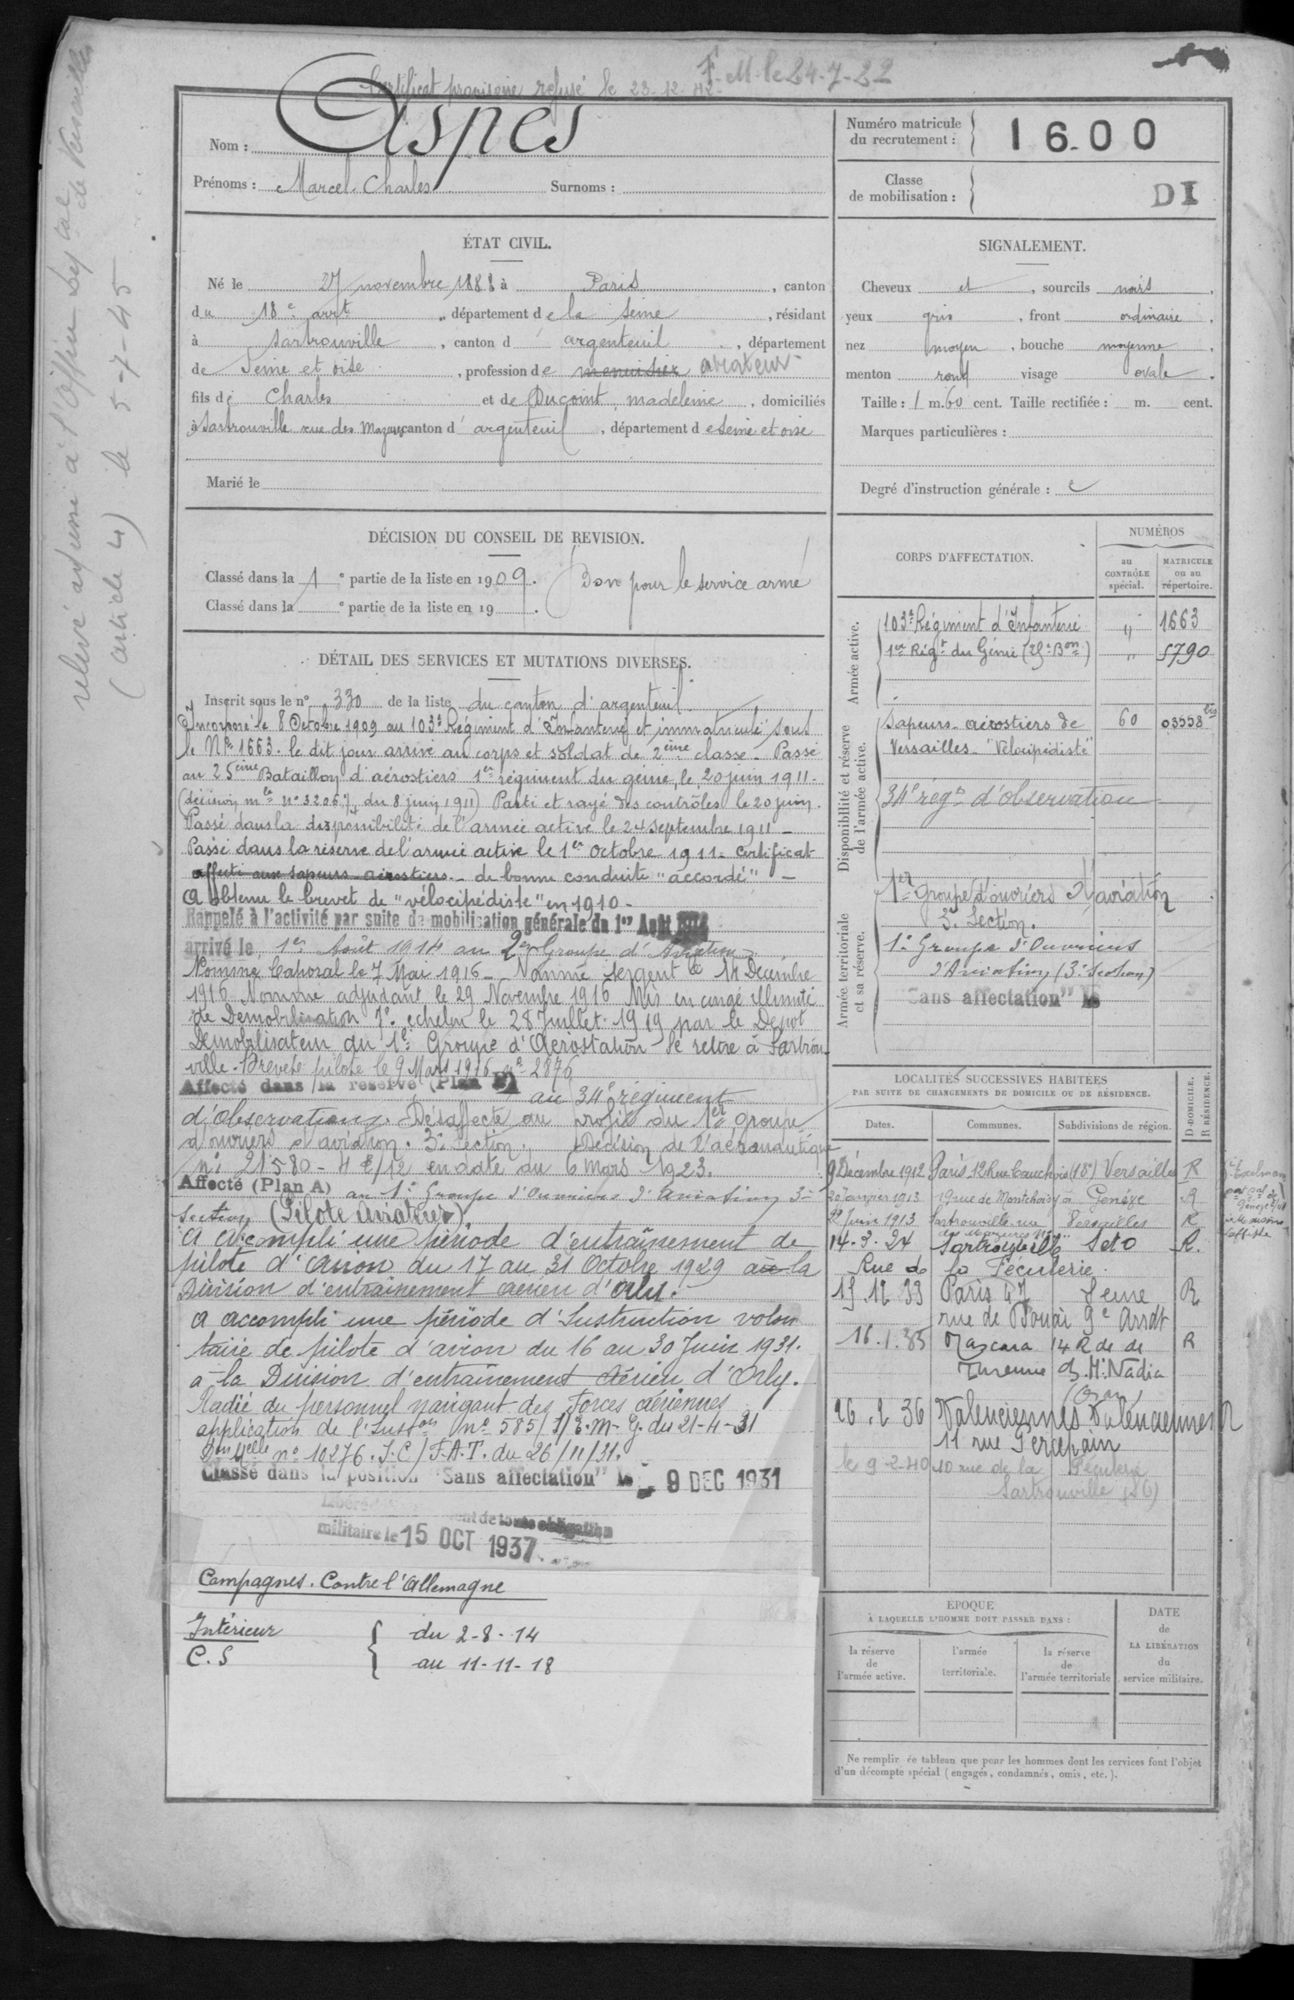 Certificat provisoire refusé le 23.12.42.
F.M. le 24-7-22
relevé adressé à l'Officier
de Versailles
(article 4) le 5-7-45
Nom : Aspes
Prénoms : Marcel Charles Surnoms :
Numéro matricule
du recrutement : 1600
Classe
de mobilisation : DI
ÉTAT CIVIL.
Né le 27 novembre 1888 à Paris, canton
du 18e arrt, département de la Seine, résidant
à Sartrouville, canton d argenteuil, département
de Seine et oise, profession de menuisier aviateur
fils de Charles et de Ducomt madeleine, domiciliés
à Sartrouville rue des canton d'argenteuil, département de Seine et oise
Marié le
SIGNALEMENT.
Cheveux et, sourcils noirs,
yeux gris, front ordinaire,
nez moyen, bouche moyenne,
menton rond visage ovale.
Taille : 1 m. 60 cent. Taille rectifiée : m. cent.
Marques particulières :
Degré d'instruction générale :
DÉCISION DU CONSEIL DE REVISION.
Classé dans la 1e partie de la liste en 1909. Bon pour le service armé
Classé dans la e partie de la liste en 19 .
DÉTAIL DES SERVICES ET MUTATIONS DIVERSES.
Inscrit sous le n° 330 de la liste du canton d'argenteuil.
Incorporé le 8 Octobre 1909 au 103e Régiment d'Infanterie et immatriculé sous
le N° 1663. le dit jour arrivé au corps et soldat de 2ème classe. Passé
au 25ème Bataillon d'aérostiers 1er régiment du génie, le 20 juin 1911-
(décision mlle n° 32067 du 8 juin 1911) Parti et rayé des contrôles le 20 juin.
Passé dans la disponibilité de l'armée active le 24 septembre 1911 -
Passé dans la réserve de l'armée active le 1er octobre 1911 - Certificat
affecté aux sapeurs aérostiers - de bonne conduite "accordé" -
A obtenu le brevet de "vélocipédiste" en 1910 -
Rappelé à l'activité par suite de mobilisation générale du 1er Août
arrivé le 1er Août 1914 au 2e Groupe d'Aviation
Nommé Caporal le 7 Mai 1916 - Nommé Sergent le 14 Décembre
1916 Nommé adjudant le 29 Novembre 1916 Mis en congé illimité
de Démobilisation 7e échelon le 28 Juillet 1919 par le Dépôt
Démobilisateur du 1er Groupe d'Aérostation Se retire à Sartrou
ville - Breveté pilote le 9 Mars 1916 n° 2876
Affecté dans la réserve (Plan au 34e régiment
d'Observation. Désaffecté au profit du 1er groupe
d'ouvriers d'aviation. 3e section. Décision de l'aéronautique
n° 21580 - 4 E/12 en date du 6 mars 1923.
Affecté (Plan A) au 1er Groupe d'Ouvriers d'aviation 3e
section (Pilote Aviateur)
A accompli une période d'entraînement de
pilote d'avion du 17 au 31 Octobre 1929 à la
Division d'entraînement aérien d'Orly.
A accompli une période d'Instruction volon
taire de pilote d'avion du 16 au 30 Juin 1931.
à la Division d'entraînement Aérien d'Orly.
Radié du personnel navigant des Forces Aériennes
application de l'Instron n° 585/1/E.M.G. du 21-4-31
Don Melle n° 10276. I.C/F.A.T. du 26/11/31.
Classé dans la position "Sans affectation" le 9 DEC 1931
Libéré de toute obligation
militaire le 15 OCT 1937
Campagnes. Contre l'Allemagne
Intérieur { du 2-8-14
C.S { au 11-11-18
CORPS D'AFFECTATION.
NUMÉROS
au
CONTRÔLE
spécial.
MATRICULE
ou au
répertoire.
Armée active.
103e Régiment d'Infanterie " 1663
1er Régt du Génie (25e Bon) " 5790
Disponibilité et réserve
de l'armée active.
Sapeurs-aérostiers de 60 03558 bis
Versailles - "Vélocipédiste"
34e régt d'observation
Armée territoriale
et sa réserve.
1er Groupe d'ouvriers d'aviation
3e Section.
1er Groupe d'Ouvriers
d'Aviation (3e Section)
"Sans affectation" le
LOCALITÉS SUCCESSIVES HABITÉES
PAR SUITE DE CHANGEMENTS DE DOMICILE OU DE RÉSIDENCE.
Dates. Communes. Subdivisions de région.
D-DOMICILE.
R-RÉSIDENCE.
9 Décembre 1912 Paris 12 Rue Cauchois (18e) Versailles R
20 Janvier 1913 19 rue de Montchoisy à Genève R
22 Juin 1913 Sartrouville rue Versailles R
14-3-24 Sartrouville S et O R.
Rue de la Féculerie.
15.12.33 Paris 47 Seine R
rue de Douai 9e Arrdt
16.1.35 Mascara 14 R de de R
Turenne d. M. Nadia
(Oran)
26.2.36 Valenciennes Valenciennes R
11 rue Percepain
le 9-2-40 10 rue de la Féculerie
Sartrouville (S O)
ÉPOQUE
À LAQUELLE L'HOMME DOIT PASSER DANS :
la réserve
de
l'armée active.
l'armée
territoriale.
la réserve
de
l'armée territoriale
DATE
de
LA LIBÉRATION
du
service militaire.
Ne remplir ce tableau que pour les hommes dont les services font l'objet
d'un décompte spécial (engagés, condamnés, omis, etc.).